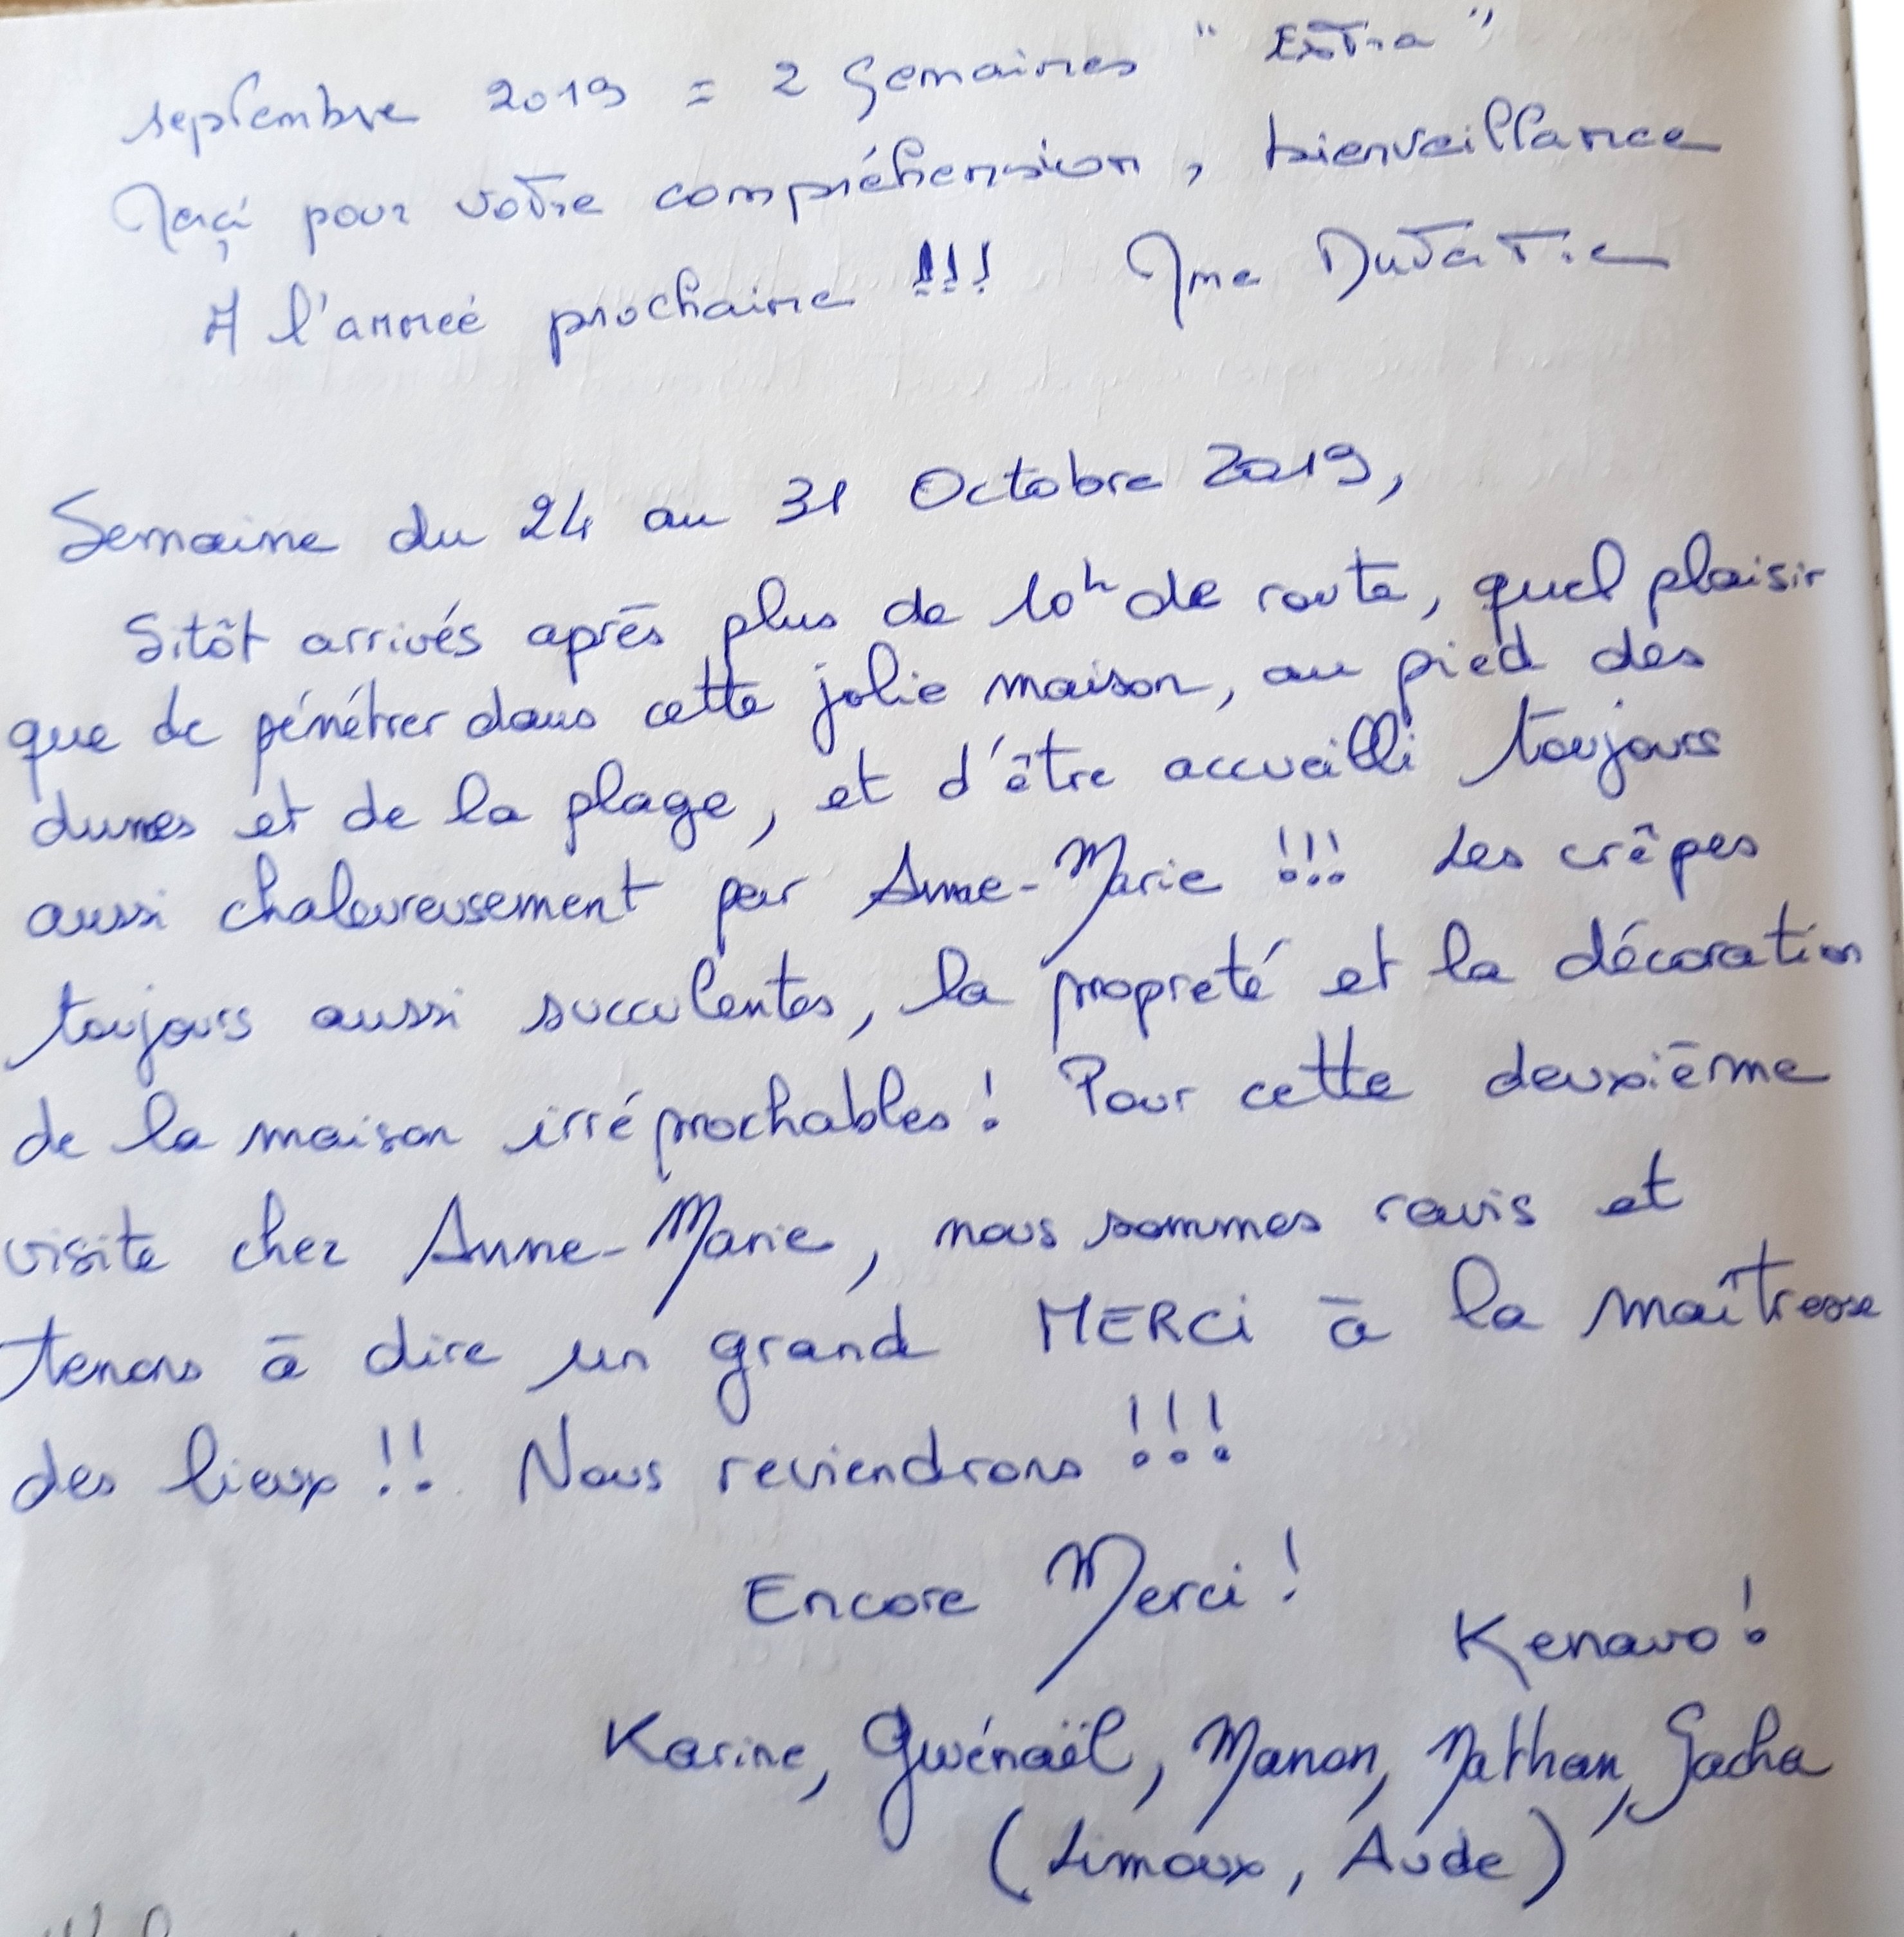 septembre 2019 = 2 semaines "Extra"
Merçi pour votre compréhension, bienveillance
A l'année prochaine !!! Mme
Semaine du 24 au 31 Octobre 2019,
Sitôt arrivés après plus de 10h de route, quel plaisir
que de pénétrer dans cette jolie maison, au pied des
dunes et de la plage, et d'être accueilli toujours
aussi chaleureusement par Anne-Marie !!! Les crêpes
toujours aussi succulentes, la propreté et la décoration
de la maison irréprochables ! Pour cette deuxième
visite chez Anne-Marie, nous sommes ravis et
tenons à dire un grand MERCi à la maîtresse
des lieux !! Nous reviendrons !!!
Encore Merci !
Kenavo !
Karine, Gwénaël, Manon, Nathan, Sacha
(Limoux, Aude)